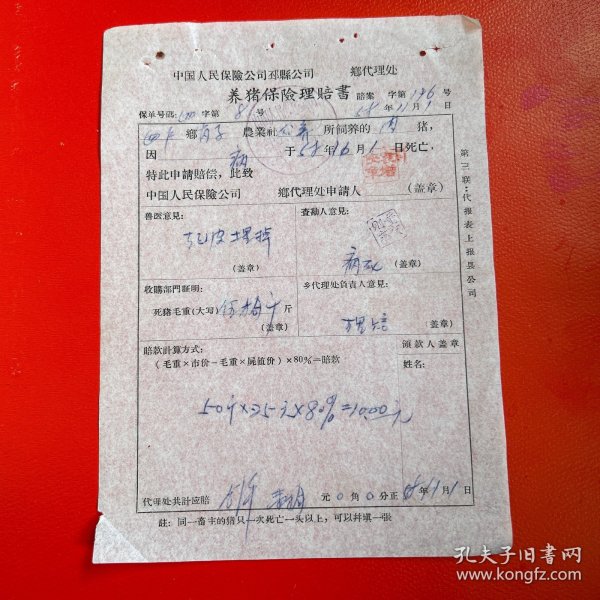 中国人民保險公司邳縣公司 鄉代理处
养猪保險理賠書 賠案 字第196号
保单号碼: 字第 81 号 58年11月1日
鄉 農業社公养 所飼养的肉猪，
因 病 于58年 月1日死亡，
特此申請賠偿，此致
中国人民保險公司 鄉代理处申請人 (盖章)
第三联：代报表上报县公司
兽医意見：
扒皮埋掉
(盖章)
查勘人意見：
病死
(盖章)
收購部門証明：
死豬毛重(大写)伍拾斤 斤
(盖章)
乡代理处負責人意見：
理賠 (盖章)
賠款計算方式：
(毛重×市价－毛重×屍值价)×80%＝賠款
50斤×25元×80%=10.00元
領款人盖章
姓名：
代理处共計应賠 元0角0分正 58年11月1日
註：同一畜主的猪只一次死亡一头以上，可以幷填一張
孔夫子旧書网
www.kongfz.com